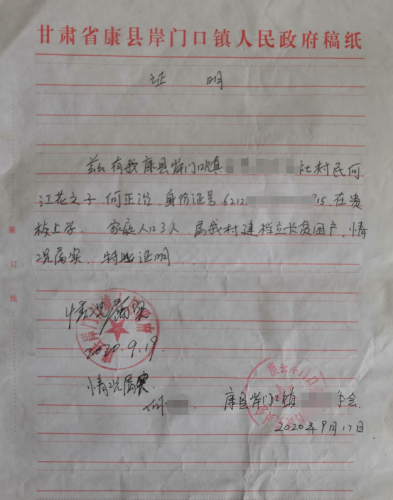 甘肃省康县岸门口镇人民政府稿纸
证 明
兹有我康县岸门口镇 社村民何
江花之子何正洪 身份证号6212 15 在贵
校上学。家庭人口3人 属我村建档立卡贫困户,情
况属实,特此证明
情况属实
2020.9.19
情况属实
何
康县岸门口镇 委会
2020年9月17日
装订线